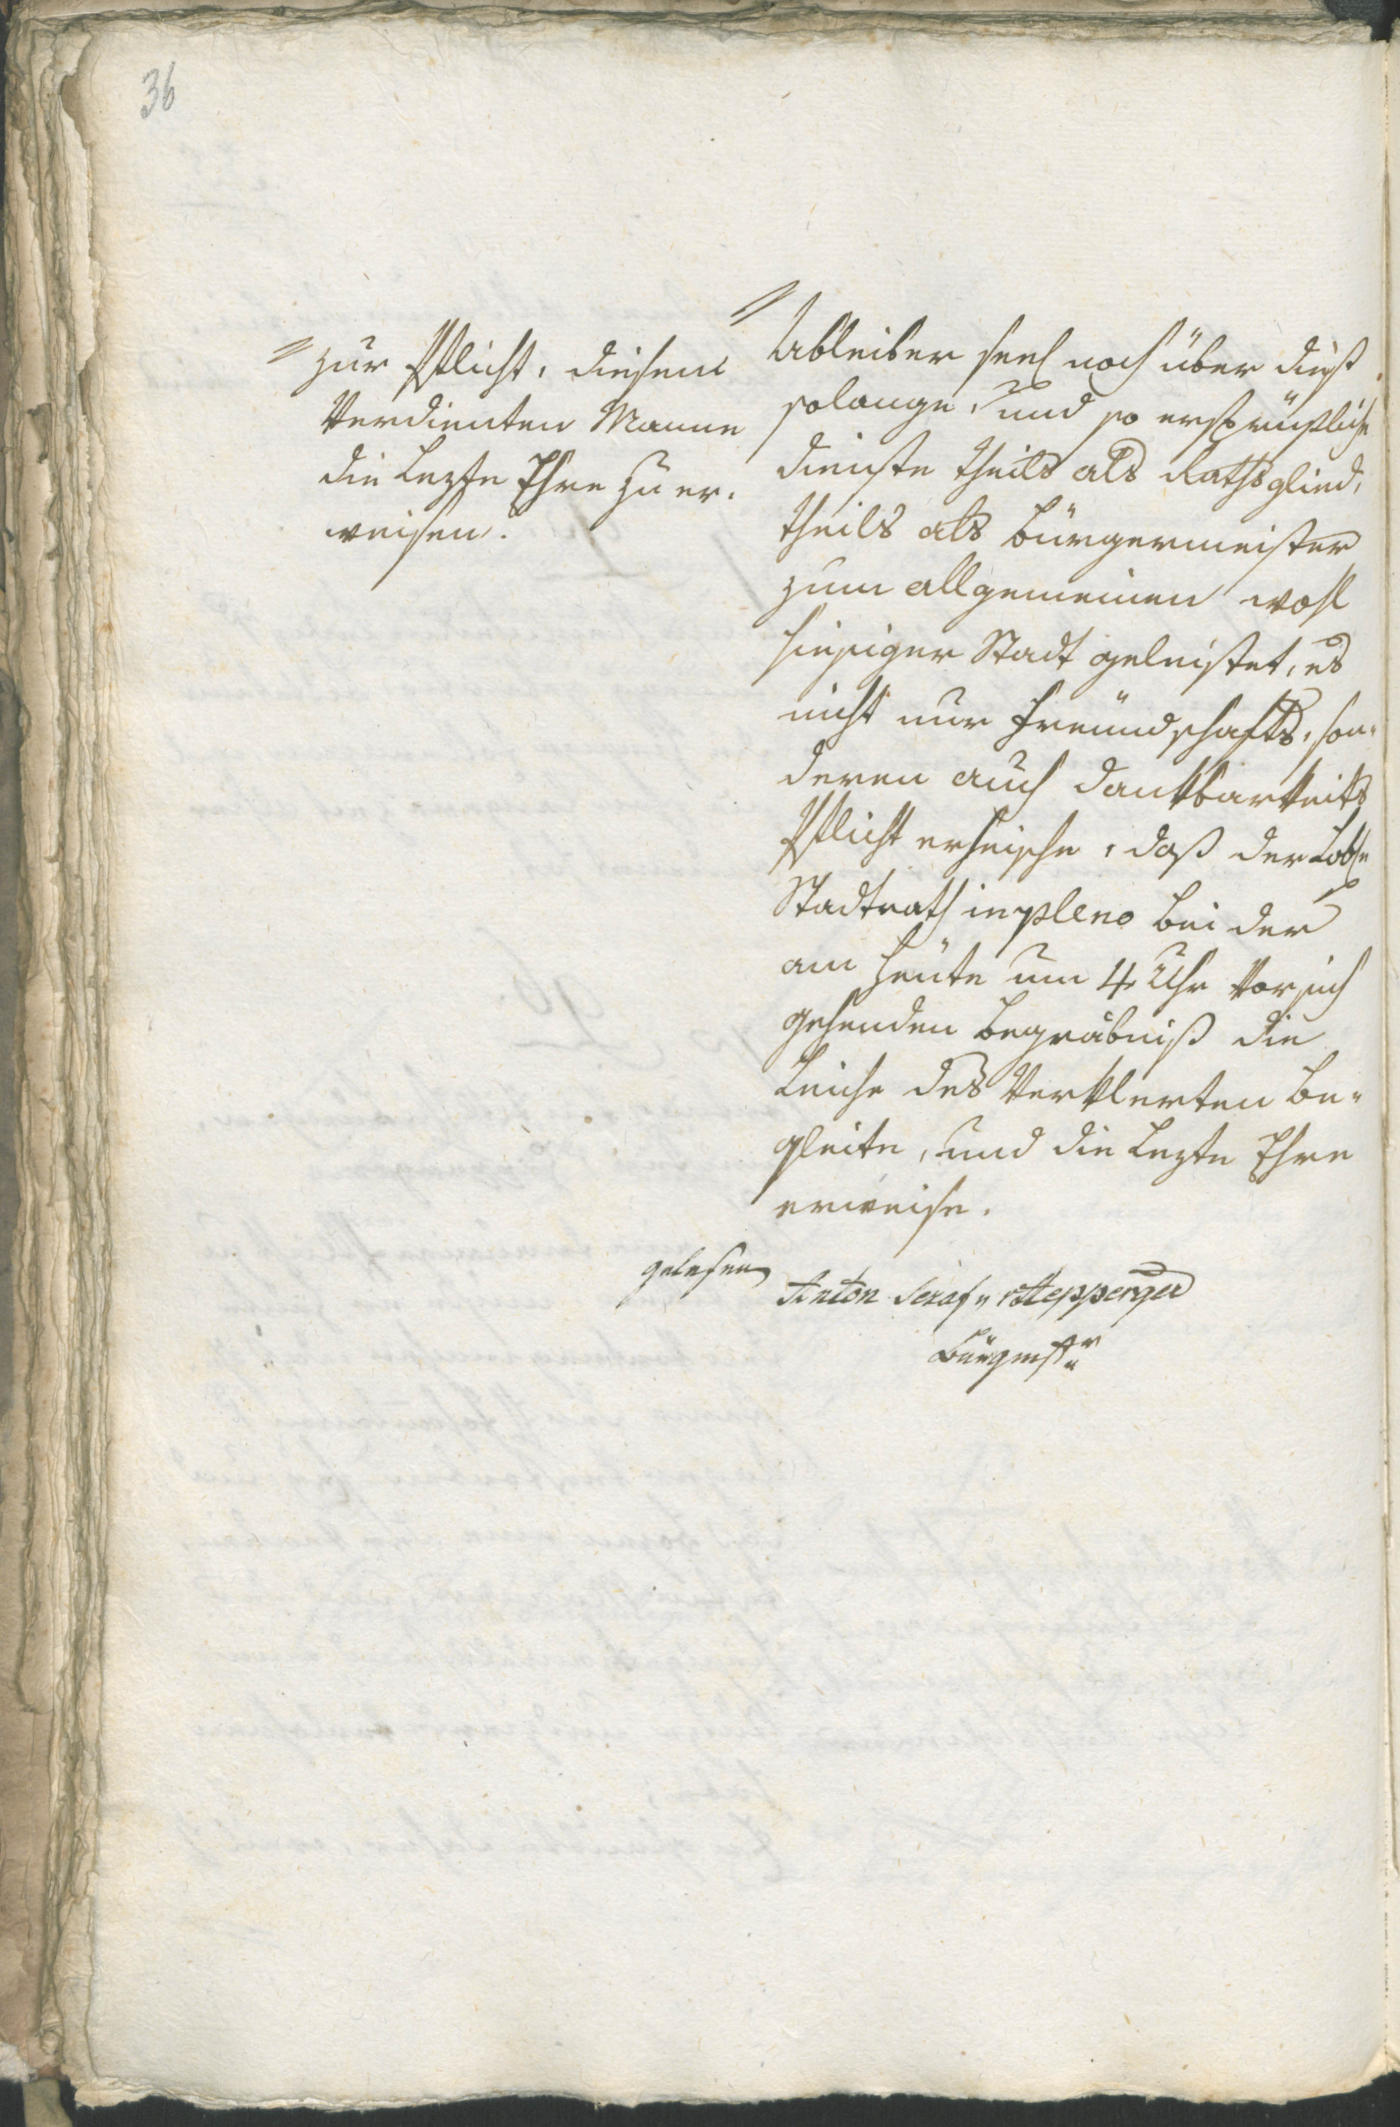 36
zur Pflicht, diesem
Verdienten Manne
die Lezte Ehre zu er-
weisen.
Ableiber seel noch über dieß
solange, und so ersprüßliche
dienste theils als Rathsglied,
theils als Bürgermeister
zum allgemeinen wohl
hiesiger Stadt geleistet, es
nicht nur freundschafts, son-
deren auch dankbarkeits
Pflicht erheische, daß der Lobe
Stadtrath in pleno bei der
am heute um 4 Uhr Vor sich
gehenden Begräbniß die
Leiche des Verklerten be-
gleite, und die Lezte Ehre
erweise.
gelesen
Anton Seraf v Hepperger
Bürgmstr